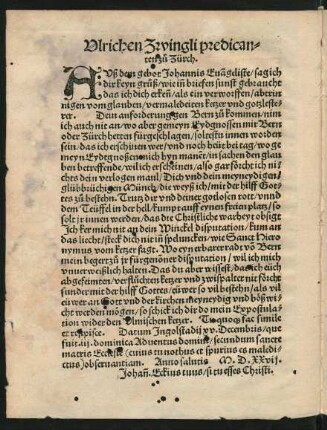 Ulrichen Zwingli predican-
ten zů Zürch.
Auß dem gebot Johannis Euãgeliste / sag ich
dir keyn grůß / wie in briefen sunst gebraucht
das ich dich erkeñ / als ein verworffen / abtrin
nigen vom glauben / vermaledeiten ketzer vnd gotzleste-
rer. Dein anforderung gen Bern zů kommen / nim
ich auch nit an / wo aber gemeyn Eydgnossen mit Bern
oder Zürch hetten fürgeschlagen / soltestu innen worden
sein das ich erschinen wer / vnd noch heüt bei tag / wo ge
meyn Eydtgnoßen mich hyn manẽt / in sachen den glau
ben betreffende / wil ich erscheinen / also gar förcht ich mi
ches dein verlogen maul. Dich vnd dein meyneydigen /
glübbrüchigen Münch / die weyß ich / mit der hilff Got-
tes zů bestehn. Trutz dir vnd deiner gotlosen rott / vnnd
dem Teüffel in der hell / kumpt auff eynen freien platz / so
solt jr innen werden / das die Christliche warheyt obsigt
Ich ker mich nit an dein Winckel disputation / kum an
das liecht / steck dich nit in spelluncken / wie Sanct Hiero
nymus vom ketzer sagt. Wo eyn ebarer radt võ Bern
mein begert zů jr fürgenõner disputation / wil ich mich
vnuerweißlich halten. Das du aber wissest / das ich eüch
abgefeimten / verflůchten ketzer vnd zwispalter nit förcht
sunder mit der hilff Gottes / eüwer so vil bestehn / als vil
eüwer an Gott vnd der kirchen meyneydig vnd bößwic
cht werden mögen / so schick ich dir do mein Expostula-
tion wider den Vlmischen ketzer. Tu quoq; fac simile
et respisce. Datum Ingolstadij xv. Decembris / que
fuit iij. dominica Aduentus domini / secundum sancte
matris Ecclesie / cuius tu nothus et spurius es maledi-
ctus / obseruantiam. Anno salutis M. D. XXvij.
Johañ. Eckius tuus / si tu esses Christi.